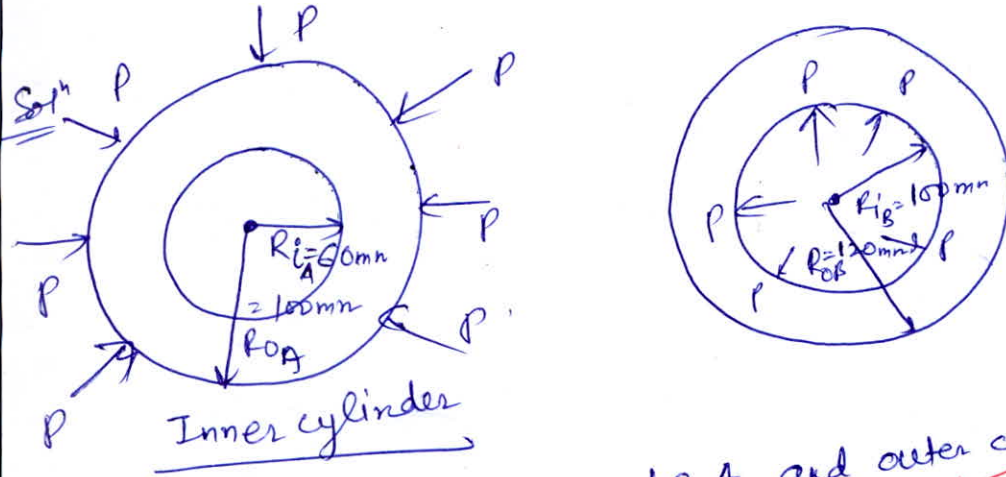 Solⁿ
P
P
P
P
P
P
P
R_iA = 60mm
= 100mm
R_OA
Inner cylinder
P
P
P
P
P
R_iB = 100mm
R_OB = 120mm
A and outer c